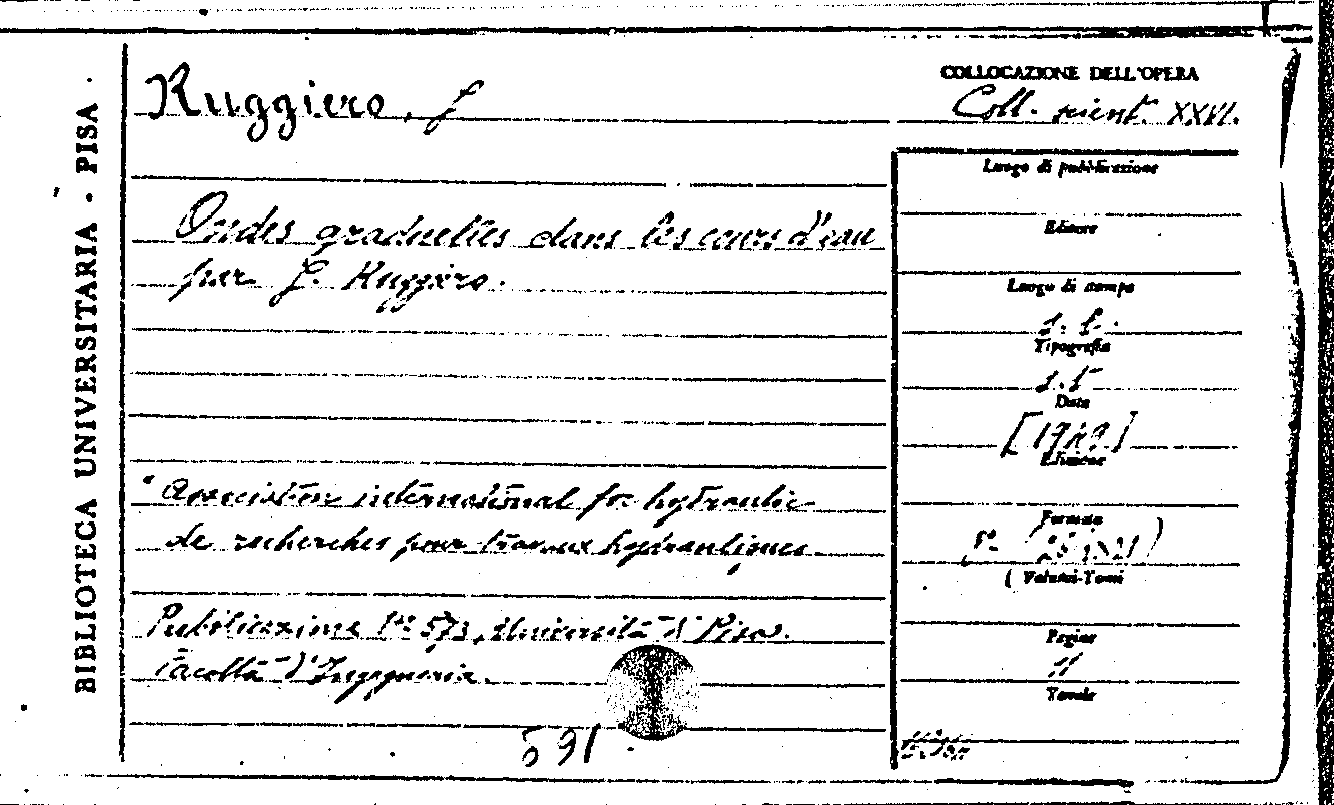 BIBLIOTECA UNIVERSITARIA - PISA
Ruggiero, J
Ondes graduelles dans les cours d'eau
par J. Ruggiero.
Association international for hydraulic
de recherches pour travaux hydrauliques.
Pubblicazione n° 573, Università di Pisa.
Facoltà d'Ingegneria.
591
COLLOCAZIONE DELL'OPERA
Coll. scient. XXVI.
Luogo di pubblicazione
Editore
Luogo di stampa
s. l.
Tipografia
s.t
Data
[1949]
Edizione
Formato
8°
Volumi-Tomi
Pagine
11
Tavole